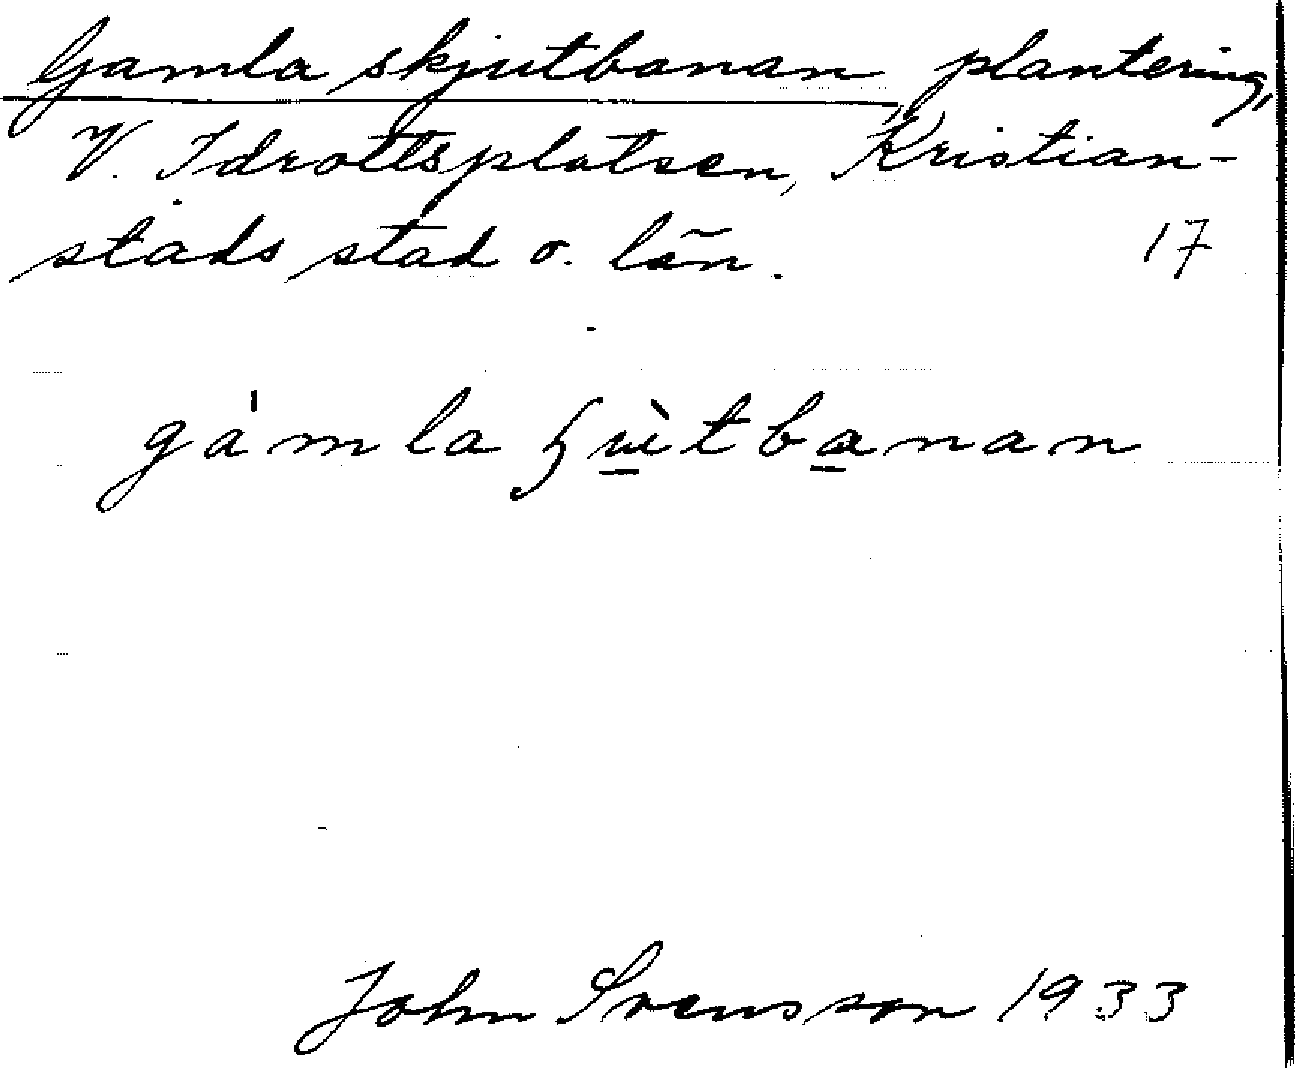 Gamla skjutbanan, plantering,
V. Idrottsplatsen, Kristian-
stads stad o. län. 17
gamla ʃùtbanan
John Svensson 1933